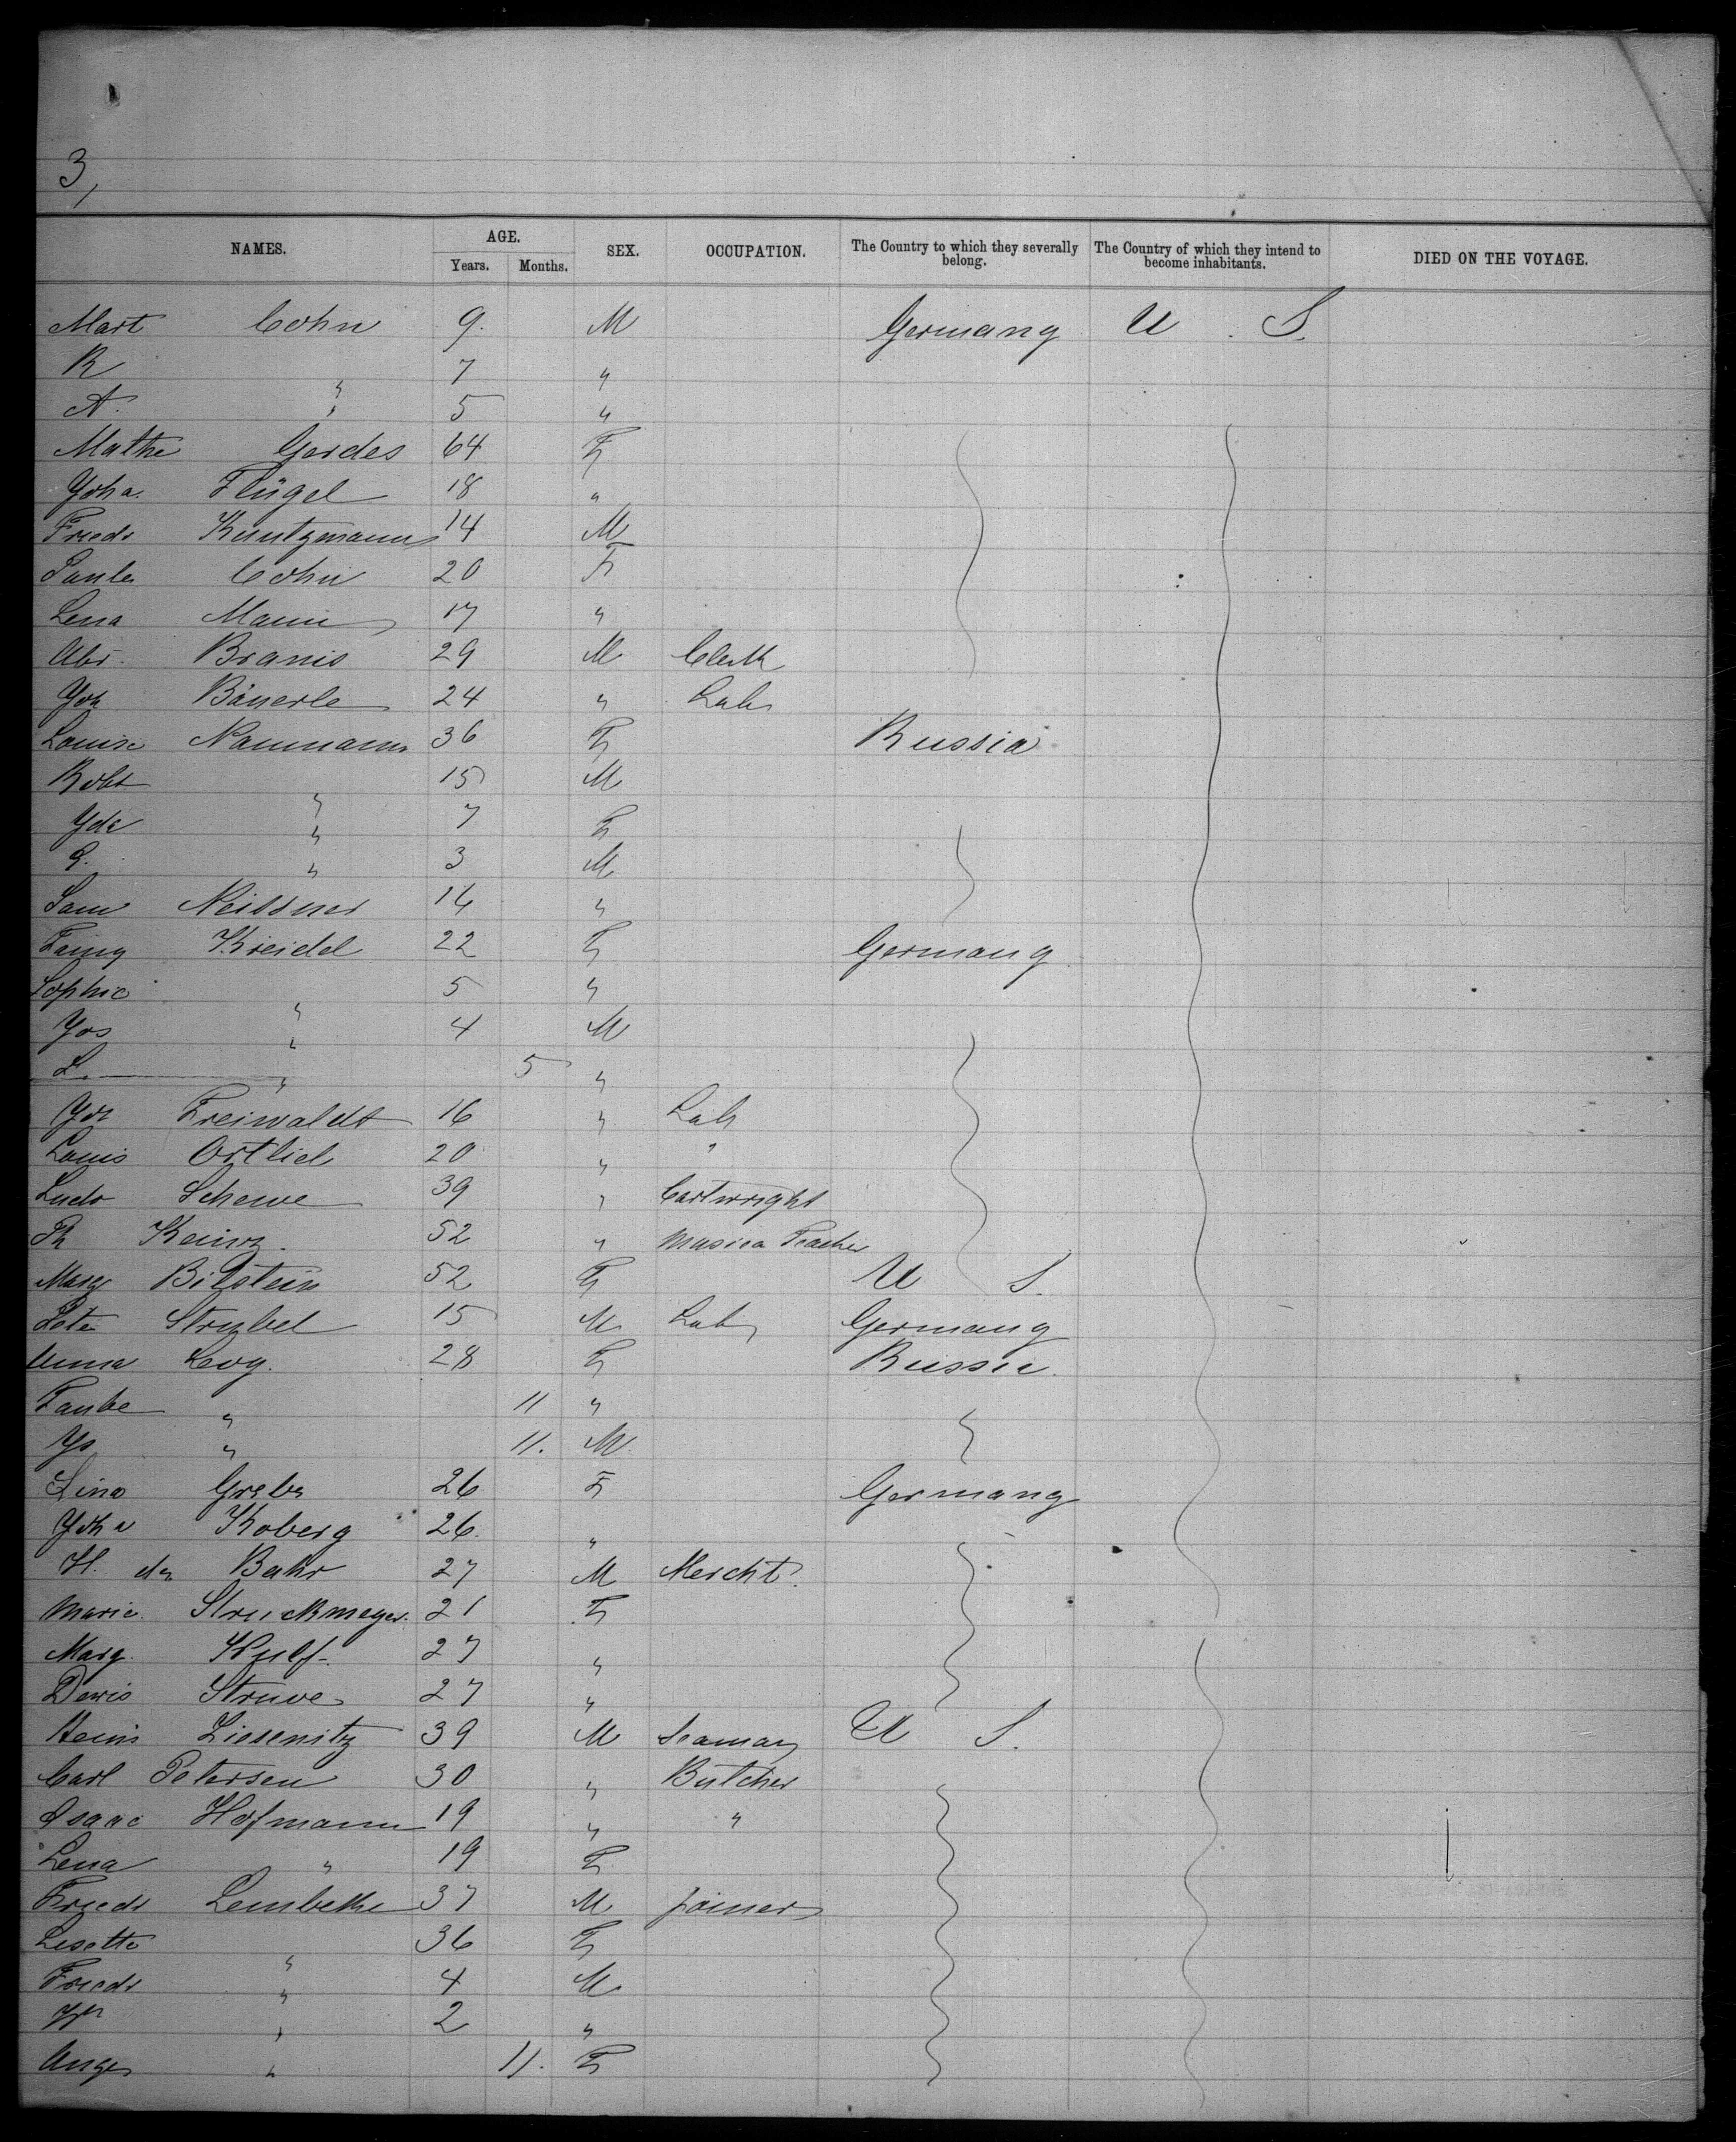 3,
NAMES. AGE. SEX. OCCUPATION. The Country to which they severally belong. The Country of which they intend to become inhabitants. DIED ON THE VOYAGE.
Years. Months.
Mart Cohn 9. M Germany U. S.
R " 7 "
A. " 5 "
Mathe Gerdes 64 F
Joha. Flügel 18 "
Friedr Kuntzmann 14 M
Paula Cohn 20 F
Lena Mann 17 "
Abr. Branis 29 M Clerk
Joh Bäuerle 24 " Lab
Louise Naumann 36 F Russia
Robt " 15 M
Ida " 7 F
G. " 3 M
Sam Neissner 14 "
Fanny Kreidel 22 F Germany
Sophie " 5 "
Jos " 4 M
L. " 5 "
Joh Freiwaldt 16 " Lab
Louis Ortlieb 20 " "
Ludw Schewe 39 " Cartwright
Th 52 " Musica Teacher
Marg Bilstein 52 F U S.
Pete Strubel 15 M Lab Germany
Anna Levy. 28 F Russia.
Taube " 11 "
Is " 11. M
Lina Grebe 26 F Germany
Joha Koberg 26. "
H. de Bahr 27 M Mercht.
Marie Struckmeyer. 21 F
Marg. Wulf. 27 "
Doris Struve 27 "
Heinr Liesenitz 39 M Seaman U S.
Carl Petersen 30 " Butcher
Isaac Hofmann 19 " "
Lena " 19 F
Friedr Lembethe 37 M Joiner
Lisette " 36 F
Friedr " 4 M
" 2 "
" 11. F